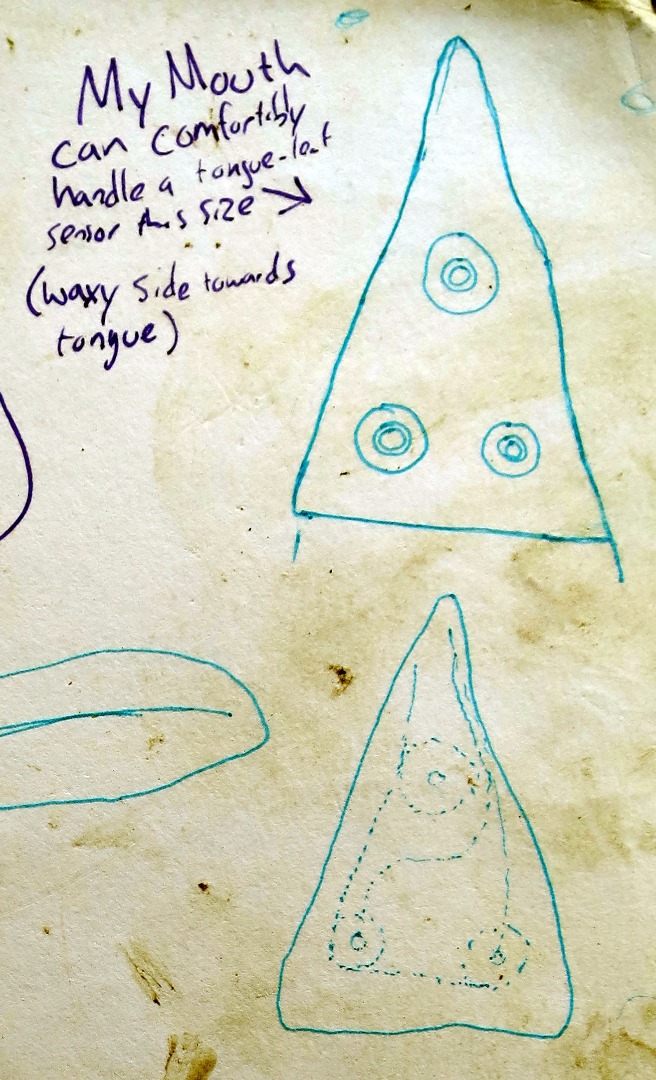 My Mouth
can comfortably
handle a tongue-leaf
sensor this size
(waxy side towards
tongue)